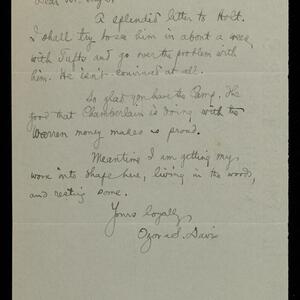 Dear Mr.
A splendid letter to Holt.
I shall try to see him in about a week,
with Tufts and go over the problem with
him. He isn't convinced at all.
So glad you have the Camp. The
good that Chamberlain is doing with the
Warren money makes us proud.
Meantime I am getting my
work into shape here, living in the woods,
and resting some.
Yours loyally,
Ozora S. Davis